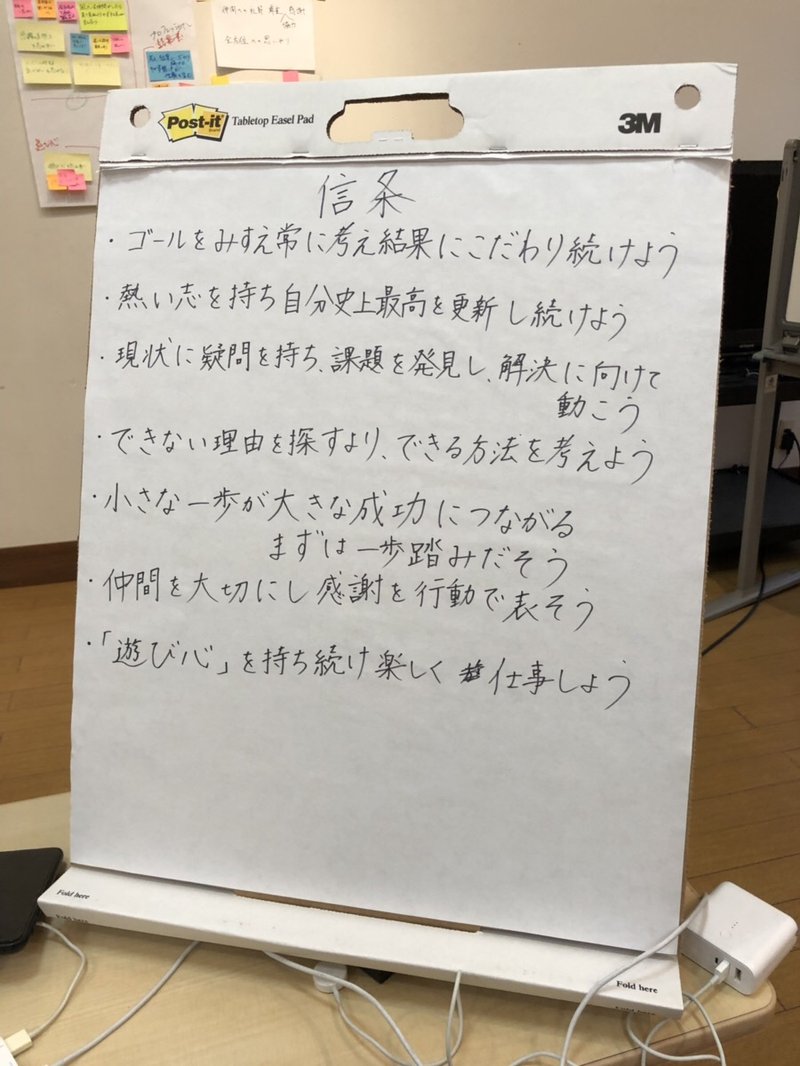 Post-it
Tabletop Easel Pad
3M
信条
・ゴールをみすえ常に考え結果にこだわり続けよう
・熱い志を持ち自分史上最高を更新し続けよう
・現状に疑問を持ち、課題を発見し、解決に向けて
動こう
・できない理由を探すより、できる方法を考えよう
・小さな一歩が大きな成功につながる
まずは一歩踏みだそう
・仲間を大切にし感謝を行動で表そう
・「遊び心」を持ち続け楽しく仕事しよう
Fold here
Fold here